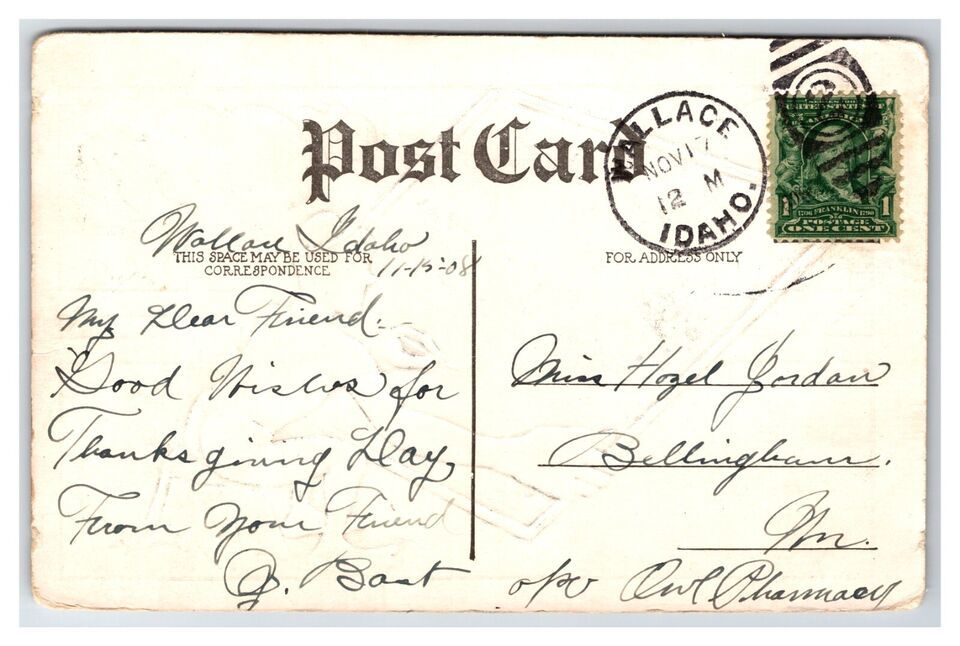 Post Card
WALLACE
NOV 17
12 M
IDAHO.
UNITED STATES OF
AMERICA
1 1
1706 FRANKLIN 1790
POSTAGE
ONE CENT
Wallace Idaho
THIS SPACE MAY BE USED FOR
CORRESPONDENCE
11-15-08
FOR ADDRESS ONLY
My Dear Friend.
Good Wishes for
Thanksgiving Day,
From Your Friend
Bast
Miss Hazel Jordan
Bellingham.
Wn.
Owl Pharmacy